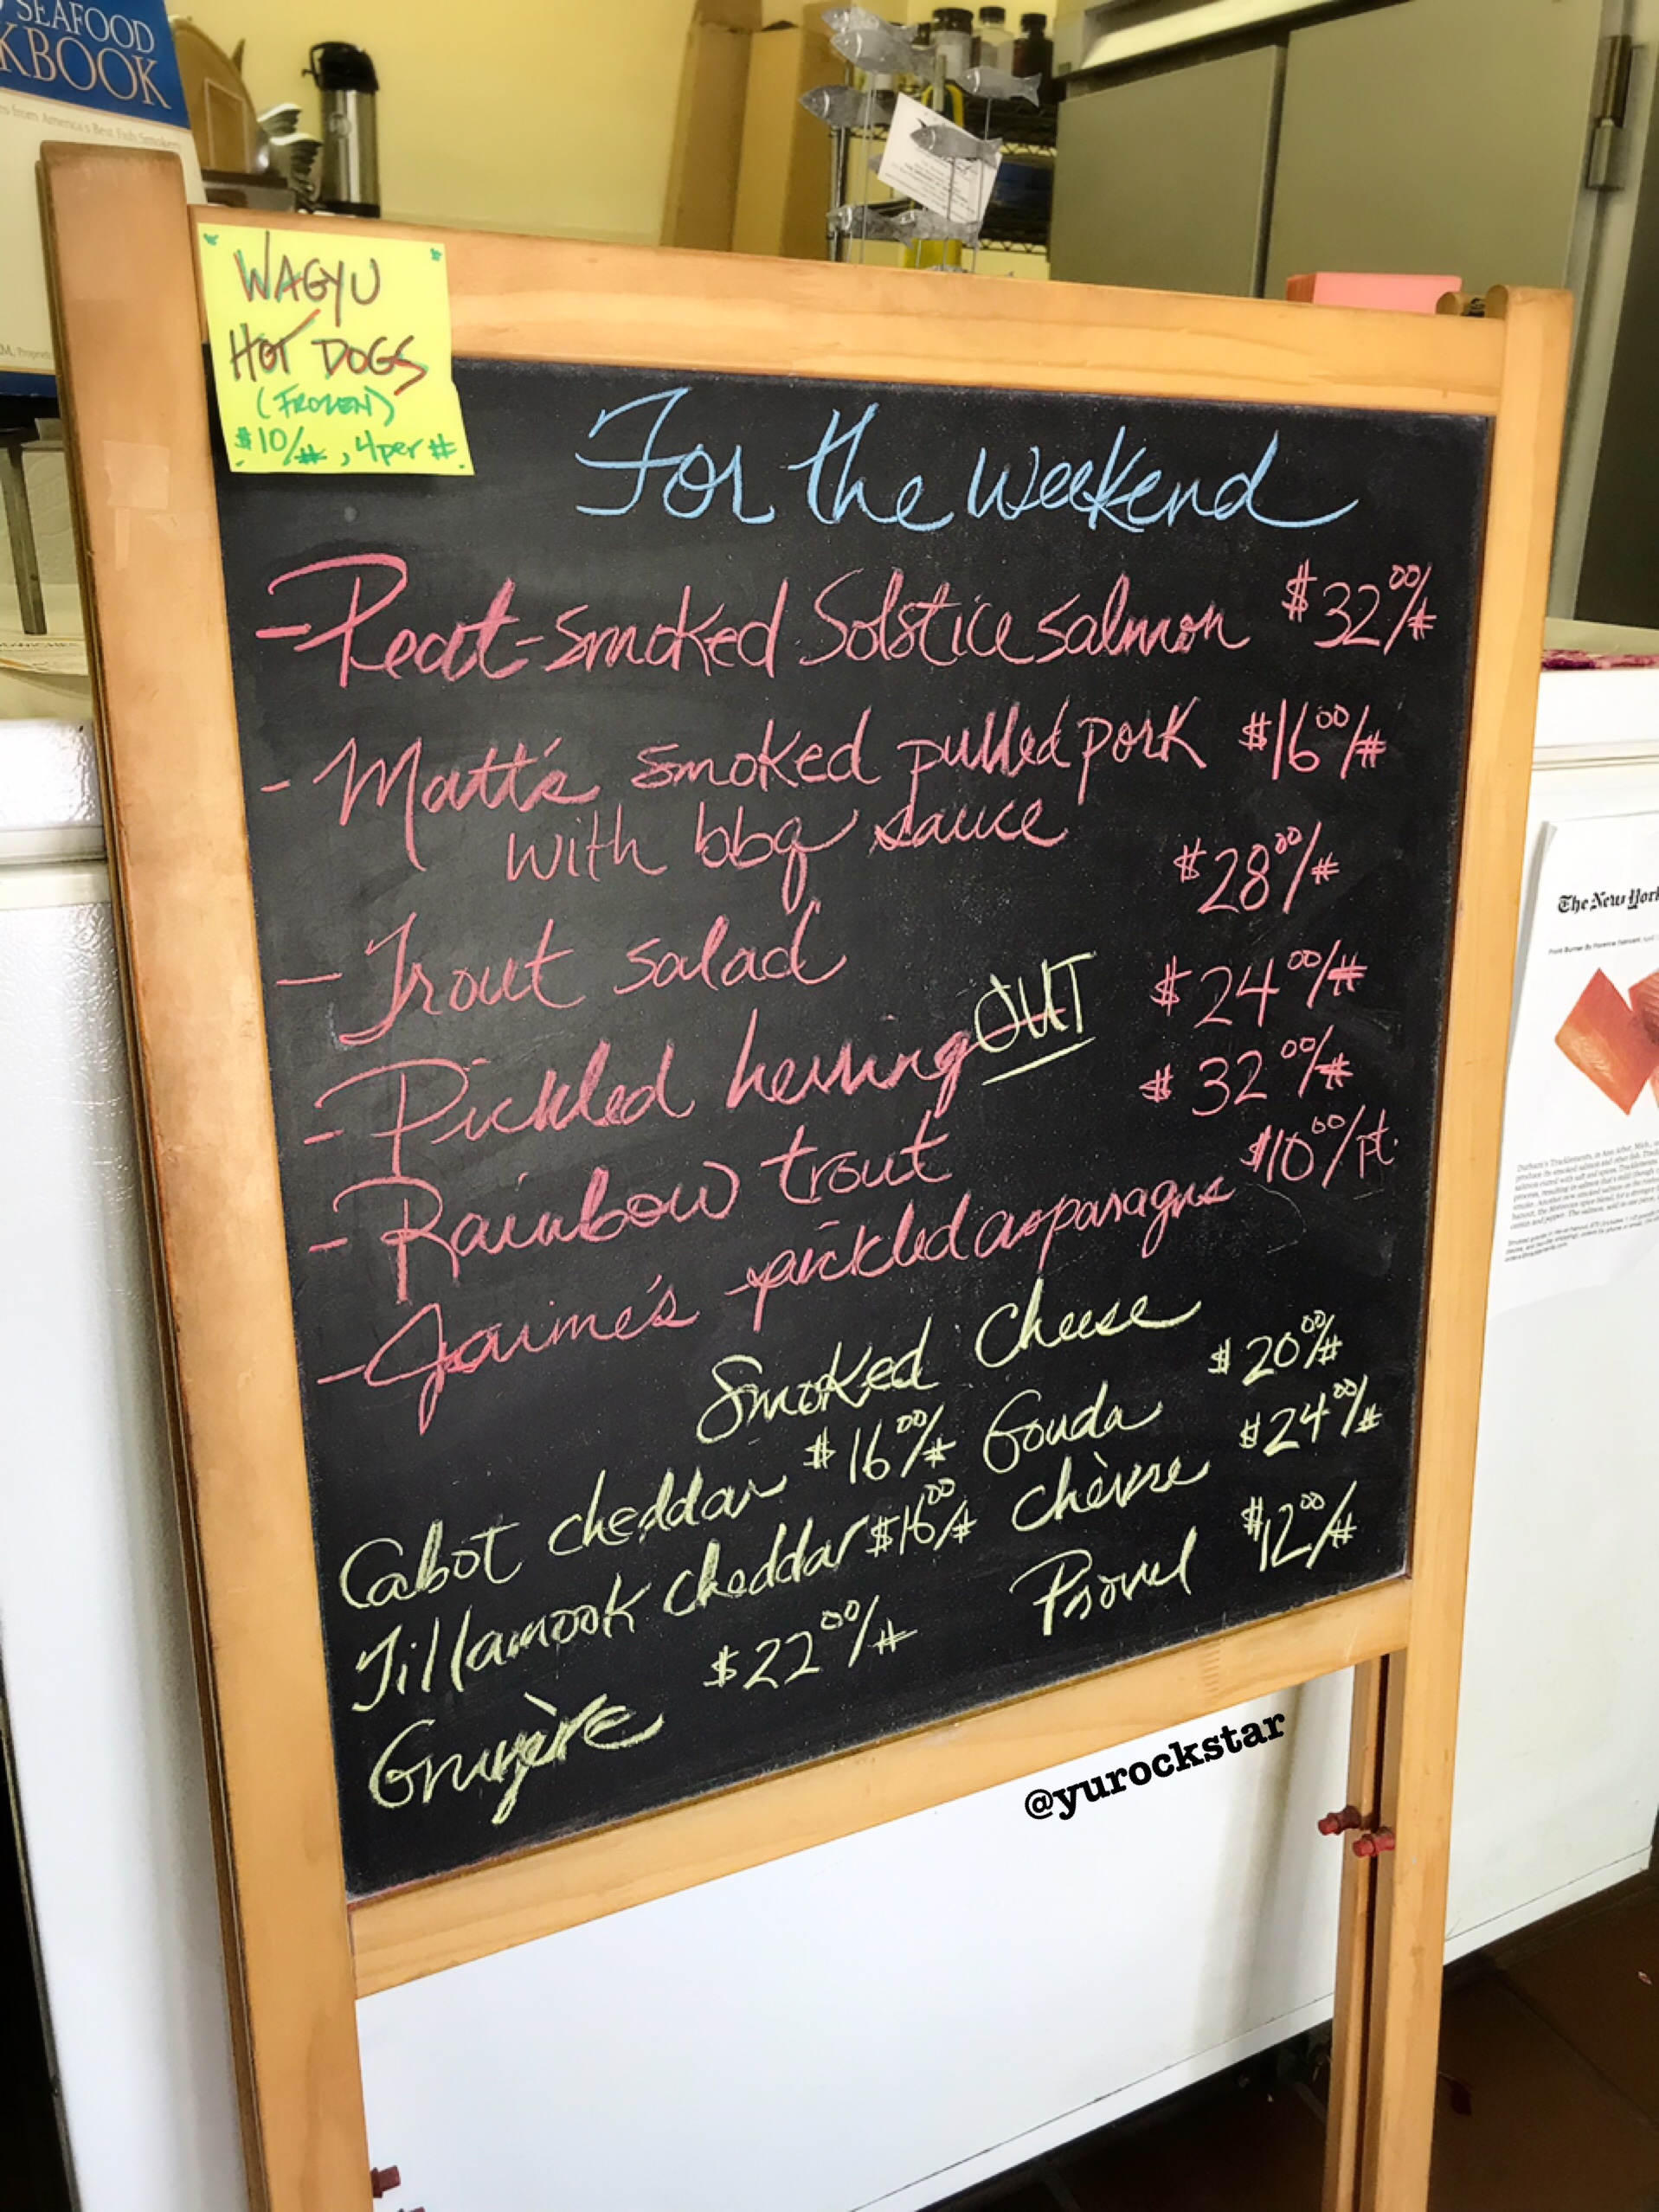 SEAFOOD
KBOOK
es from America's Best Fish Smoker
WAGYU
HOT DOGS
(FROZEN)
$10/#, 4 per #
For the weekend
- Peat-smoked Solstice salmon $32.00/#
- Matt's smoked pulled pork $16.00/#
with bbq sauce
- Trout salad $28.00/#
- Pickled herring OUT $24.00/#
- Rainbow trout $32.00/#
- Jaime's pickled asparagus $10.00/pt.
Smoked Cheese
Cabot cheddar $16.00/# Gouda $20.00/#
Tillamook cheddar $16.00/# Chèvre $24.00/#
Gruyère $22.00/# Provel $12.00/#
The New York
@yurockstar